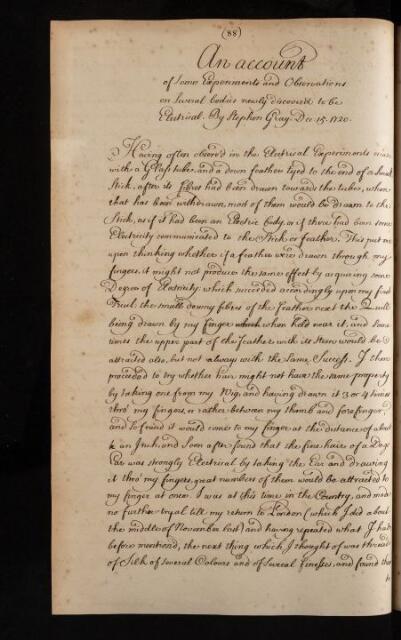 (88)
An account
of Some Experiments and Observations
on Several bodies newly discovered to be
Electrical. By Stephen Gray. Dec. 15. 1720.
Having often observ'd in the Electrical Experiments made
with a Glass tube, and a down feather tyed to the end of a small
Stick, after its fibres had been drawn towards the tube, when
that has been withdrawn, most of them would be drawn to the
Stick, as if it had been an Electric body, or if there had been some
Electricity communicated to the Stick or feather. This put me
upon thinking whether if a feather were drawn through my
fingers, it might not produce the same effect by acquiring some
Degree of Elatricity which succeeded accordingly upon my first
Tryal. the small downy fibres of the feather next the Quill
being drawn by my finger when held near it, and some
times the upper part of the feather with its stem would be
attracted also, but not always with the same Success. I then
proceeded to try whether hair might not have the same property
by taking one from my Wig, and having drawn it 3 or 4 times
thro' my fingers, or rather between my thumb and fore finger,
and so found it would come to my finger at the distance of about
½ an Inch, and Soon after found that the fine haire of a Dog's
Ear was strongly Electrical by taking the Ear and drawing
it thro' my fingers, great numbers of them would be attracted to
my finger at once. I was at this time in the Country, and made
no further tryal till my return to London (which I did about
the middle of November last) and having repeated what I had
before mentiond, the next thing which I thought of was threads
of Silk of several Colours and of Several finesses, and found that